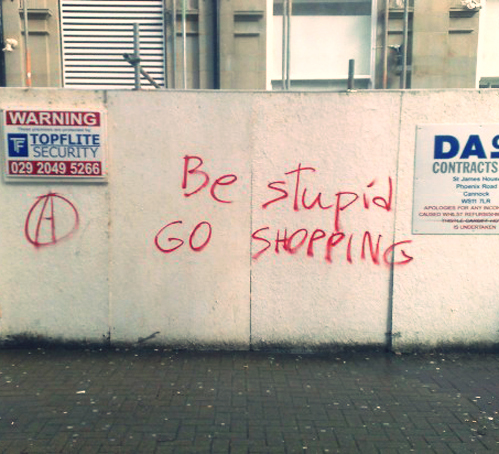 WARNING
These premises are protected by
TOPFLITE
SECURITY
029 2049 5266
A
Be stupid
GO SHOPPING
DAS
CONTRACTS
St James House
Phoenix Road
Cannock
WS11 7LR
APOLOGIES FOR ANY
CAUSED WHILST REFURBISHMENT
THISTLE CARDIFF
IS UNDERTAKEN